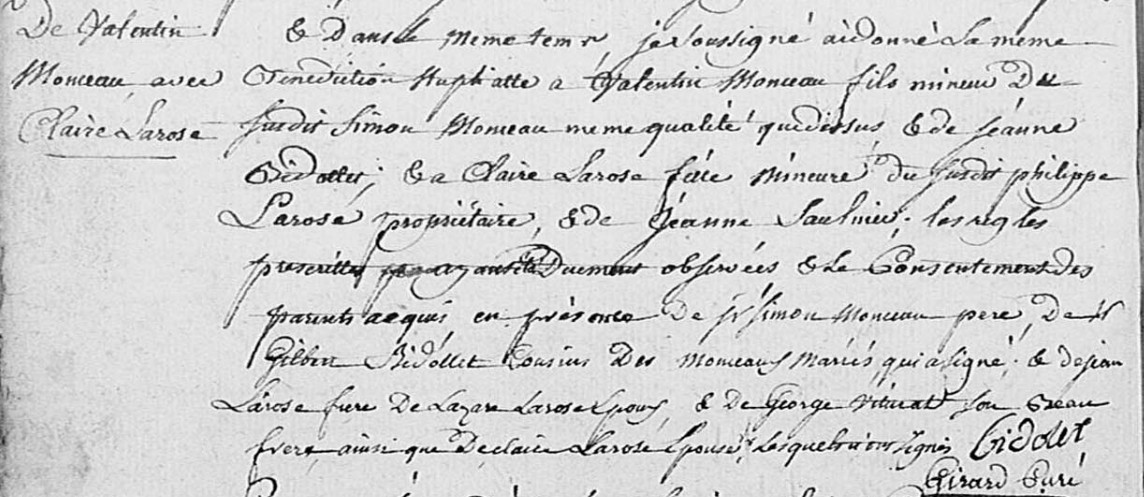 De Valentin
Monceau, avec
Claire Larose
& Dans le meme tems, je soussigné ai donné La meme
Benediction Nuptialle a Valentin Monceau fils mineur Du
susdit Simon Monceau meme qualité que dessus, & de jéanne
Bidollet; & a Claire Larose fille Mineure du susdit philippe
Larose propriétaire, & de Jéanne Saulnier; les regles
prescrittes ayant été Duement observées & Le Consentement Des
parents acquis en présence De Sr Simon Monceau pere, De Sr
Gilbin Bidollet Cousins Des Monceaux Mariés qui a signé; & de jean
Larose frere De Lazare Larose Epoux, & De George son Beau
frere, ainsi que De claire Larose Epouse, Lesquels n'ont signés Bidolet
Girard Curé